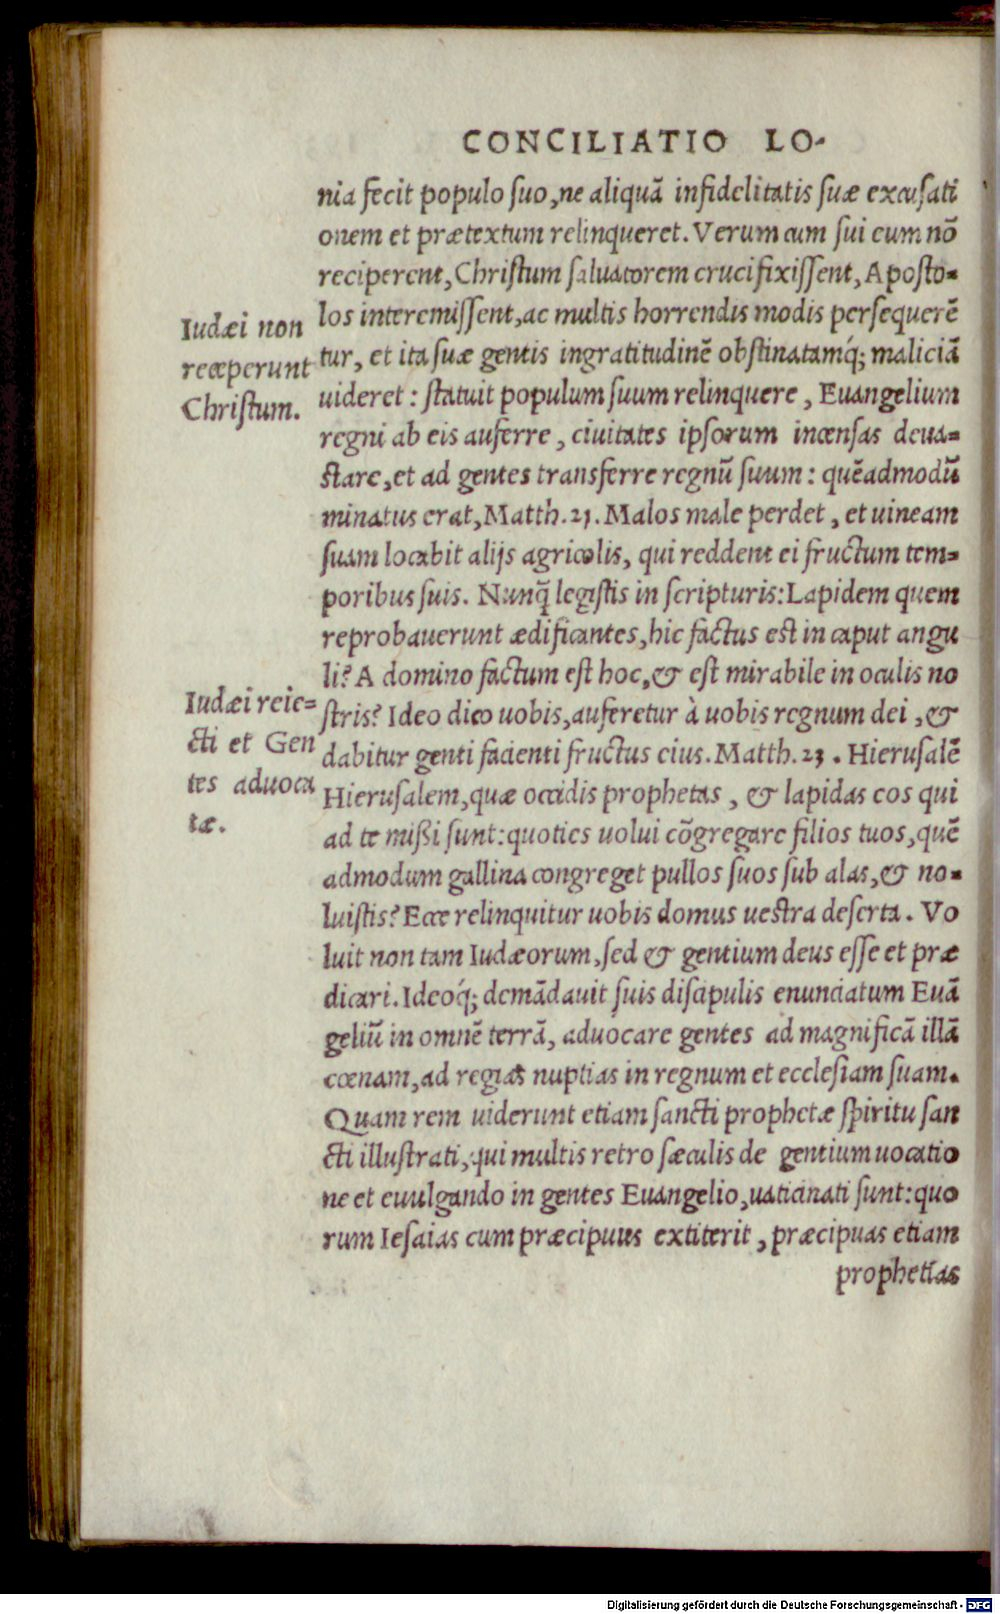 CONCILIATIO LO-
nia fecit populo ſuo, ne aliquã infidelitatis ſuæ excuſati
onem et prætextum relinqueret. Verum cum ſui eum nõ
reciperent, Chriſtum ſaluatorem crucifixiſſent, Apoſto=
los interemiſſent, ac multis horrendis modis perſequerẽ
tur, et ita ſuæ gentis ingratitudinẽ obſtinatamq́; maliciã
uideret: ſtatuit populum ſuum relinquere, Euangelium
regni ab eis auferre, ciuitates ipſorum incenſas deua=
ſtare, et ad gentes transferre regnũ ſuum: quẽadmodũ
minatus erat, Matth.21. Malos male perdet, et uineam
ſuam locabit alijs agricolis, qui reddent ei fructum tem=
poribus ſuis. Nunq̃ legiſtis in ſcripturis: Lapidem quem
reprobauerunt ædificantes, hic factus est in caput angu
li? A domino factum eſt hoc, & eſt mirabile in oculis no
ſtris? Ideo dico uobis, auferetur à uobis regnum dei, &
dabitur genti facienti fructus eius. Matth.23. Hieruſalẽ
Hieruſalem, quæ occidis prophetas, & lapidas eos qui
ad te mißi ſunt: quoties uolui cõgregare filios tuos, quẽ
admodum gallina congreget pullos ſuos ſub alas, & no=
luiſtis? Ecce relinquitur uobis domus ueſtra deſerta. Vo
luit non tam Iudæorum, ſed & gentium deus eſſe et præ
dicari. Ideoq́; demãdauit ſuis diſcipulis enunciatum Euã
geliũ in omnẽ terrã, aduocare gentes ad magnificã illã
cœnam, ad regias nuptias in regnum et eccleſiam ſuam.
Quam rem uiderunt etiam ſancti prophetæ ſpiritu ſan
cti illuſtrati, qui multis retro ſæculis de gentium uocatio
ne et euulgando in gentes Euangelio, uaticinati ſunt: quo
rum Ieſaias cum præcipuus extiterit, præcipuas etiam
prophetias
Iudæi non
receperunt
Chriſtum.
Iudæi reie=
cti et Gen
tes aduoca
tæ.
Digitalisierung gefördert durch die Deutsche Forschungsgemeinschaft - DFG